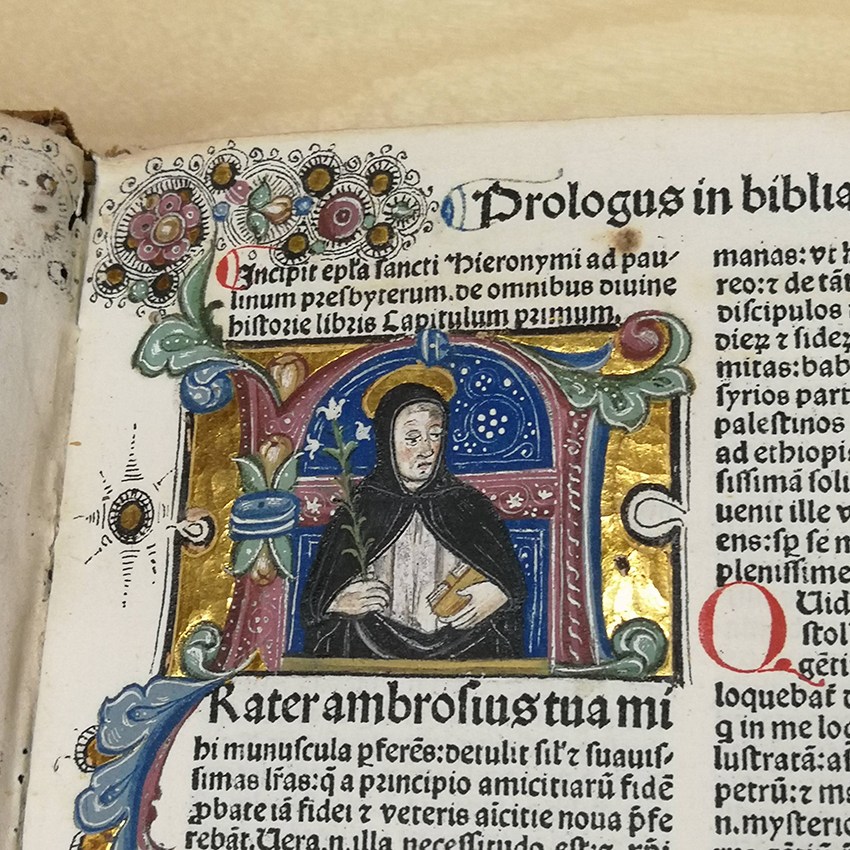 Prologus in biblia
Incipit epl̄a sancti Hieronymi ad pau-
linum presbyterum. de omnibus diuine
historie libris Capitulum primum.
Rater ambrosius tua mi
hi munuscula ꝑferēs: detulit sil̕ ⁊ suauis-
simas lr̄as: q̄ a principio amicitiarū fidē
ꝓbate iā fidei ⁊ veteris aīcitie noua p̄fe
rebāt. Uera .n. illa necessitudo est: ⁊ xp̄i
manas: vt h
reo: ⁊ de tāt
discipulos
dieꝝ ⁊ sideꝝ
mitas: bab
syrios part
palestinos
ad ethiopi
sissimā soli
uenit ille v
ens: sꝑ se m
plenissime
Uid
stol
gēti
loquebat̄
q in me loq
lustratā: a
petrū: ⁊
n. mysterio